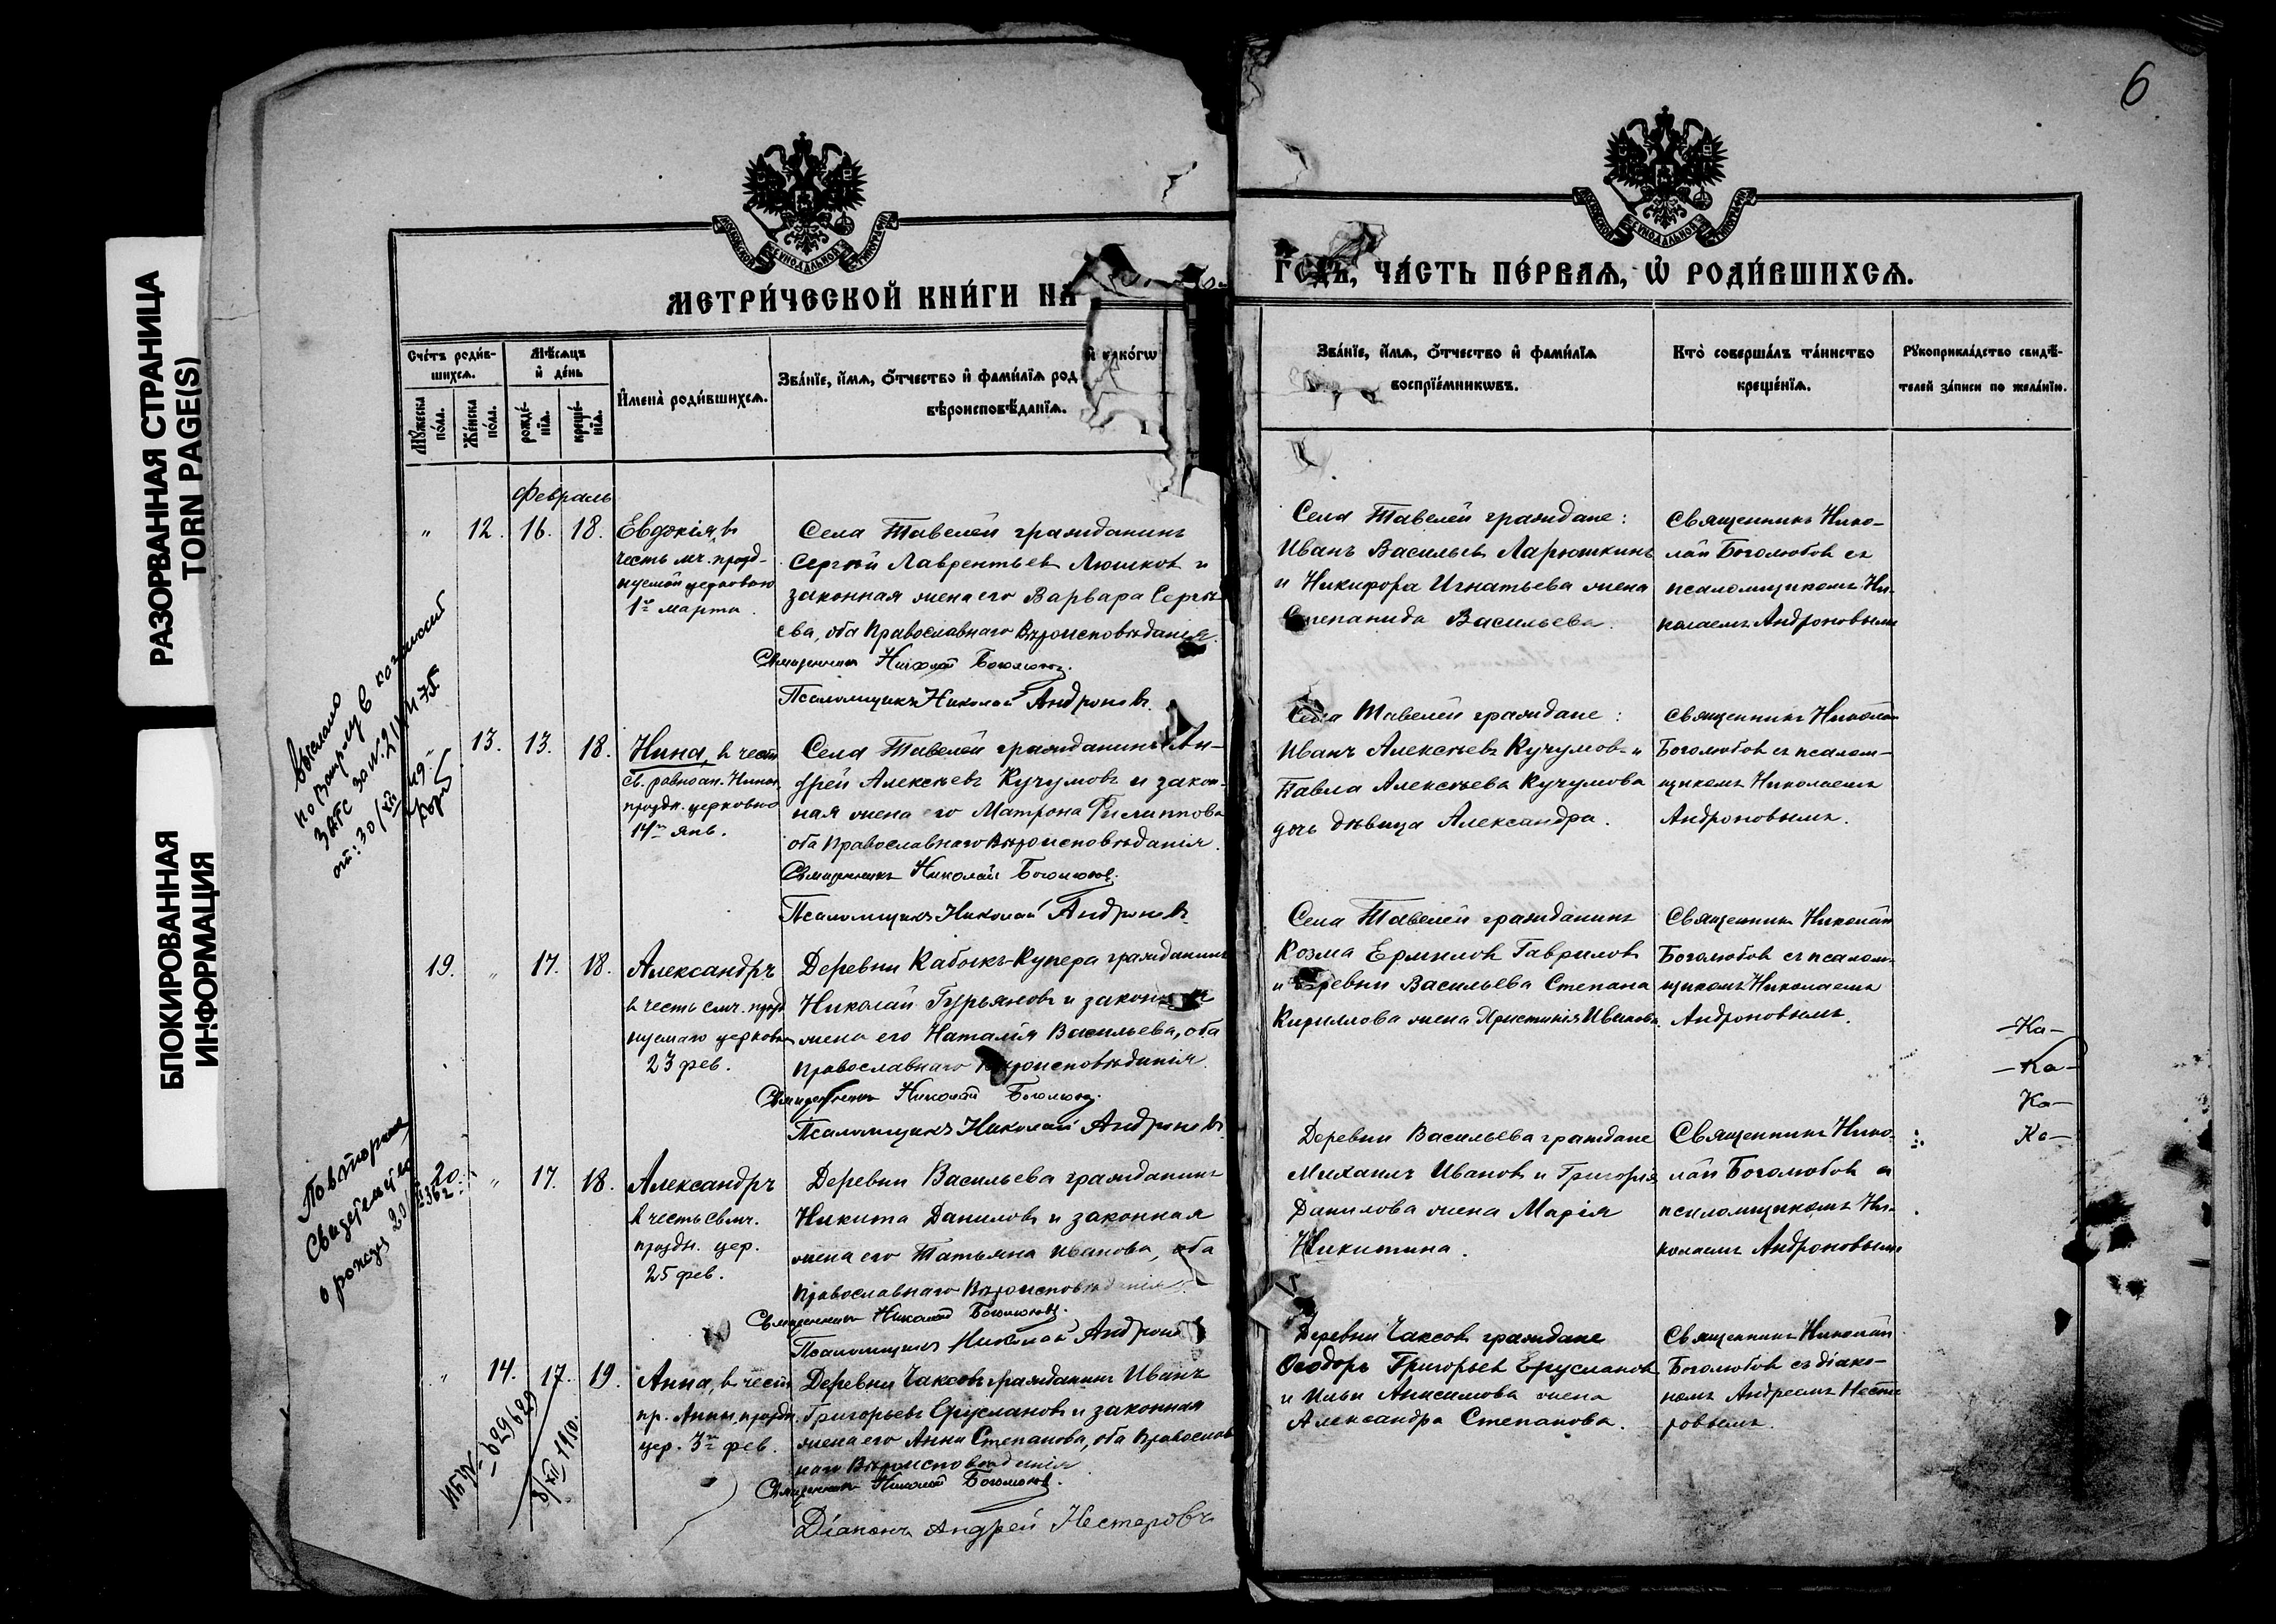 РАЗОРВАННАЯ СТРАНИЦА
TORN PAGE(S)
БЛОКИРОВАННАЯ
ИНФОРМАЦИЯ
6
МЕТРИ́ЧЕСКОЙ КНИ́ГИ НА
ГОДЪ, ЧА́СТЬ ПЕ́РВАѦ, Ѽ РОДИ́ВШИХСѦ.
Сче́тъ роди́в-
шихсѧ.
Мꙋ́жеска по́ла.
Же́нска по́ла.
Мѣ́сѧцъ
и҆ де́нь
рожде́-
нїѧ.
креще́-
нїѧ.
И҆мена̀ роди́вшихсѧ.
Зва́нїе, и҆́мѧ, ѻ҆́тчество и҆ фами́лїѧ род
и҆ како́гѡ
вѣроисповѣ́данїѧ.
Зва́нїе, и҆́мѧ, ѻ҆́тчество и҆ фами́лїѧ
воспрїе́мникѡвъ.
Кто̀ соверша́лъ та́инство
креще́нїѧ.
Рꙋкоприкла́дство свидѣ́-
телей за́писи по жела́нїю.
Февраль
" 12. 16. 18.
Евдокія, въ
честь мч. празд-
нуемой церковью
1го марта.
Села Тавелей гражданинъ
Сергѣй Лаврентьевъ Люшковъ и
законная жена его Варвара Сергѣ-
ева, оба Православнаго Вѣроисповѣданія.
Священникъ Николай Боголюбов.
Псаломщикъ Николай Андроновъ.
Села Тавелей граждане:
Иванъ Васильевъ Ларюшкинъ
и Никифора Игнатьева жена
Степанида Васильева.
Священникъ Нико-
лай Боголюбов съ
псаломщикомъ Ни-
колаемъ Андроновымъ
" 13. 13. 18.
Нина, въ честь
св. равноап. Нины,
праздн. церковью
14го янв.
Села Тавелей гражданинъ Ан-
дрей Алексѣевъ Кучумовъ и закон-
ная жена его Матрона Филиппова
оба Православнаго Вѣроисповѣданія.
Священникъ Николай Боголюбов.
Псаломщикъ Николай Андроновъ
Села Тавелей граждане:
Иванъ Алексѣевъ Кучумовъ и
Павла Алексѣева Кучумова
дочь дѣвица Александра.
Священникъ Николай
Боголюбов съ псалом-
щикомъ Николаемъ
Андроновымъ.
19. " 17. 18.
Александръ
въ честь смч. празд
нуемаго церковью
23 фев.
Деревни Кабыкъ-Купера гражданинъ
Николай Гурьяновъ и законная
жена его Наталія Васильева, оба
Православнаго Вѣроисповѣданія.
Священникъ Николай Боголюбов.
Псаломщикъ Николай Андроновъ
Села Тавелей гражданинъ
Козма Ермиловъ Гавриловъ
и деревни Васильева Степана
Кириллова жена Христинія Иванова.
Священникъ Николай
Боголюбов съ псалом-
щикомъ Николаемъ
Андроновымъ.
-Ка-
-Ка-
Ка-
Ка-
20. " 17. 18.
Александръ
въ честь свмч.
праздн. цер.
25 фев.
Деревни Васильева гражданинъ
Никита Даниловъ и законная
жена его Татьяна Иванова, оба
Православнаго Вѣроисповѣданія.
Священникъ Николай Боголюбов.
Псаломщикъ Николай Андронов
Деревни Васильева граждане
Михаилъ Ивановъ и Григорія
Данилова жена Марія
Никитина.
Священникъ Нико-
лай Боголюбов съ
псаломщикомъ Ни-
колаемъ Андроновымъ
" 14. 17. 19.
Анна, въ честь
пр. Анны, праздн.
цер. 3го фев.
Деревни Чаксовъ гражданинъ Иванъ
Григорьевъ Еруслановъ и законная
жена его Анна Степанова, оба Православ
наго Вѣроисповѣданія.
Священникъ Николай Боголюбов.
Діаконъ Андрей Нестеровъ
Деревни Чаксовъ граждане
Ѳеодоръ Григорьевъ Еруслановъ
и Ильи Анисимова жена
Александра Степанова.
Священникъ Николай
Боголюбов съ діако-
номъ Андреемъ Несте
ровымъ.
Выслано
по запросу в
ЗАГС за №
от: 30/XII
Повторное
Свидетельство
о рожд.
№ 629629